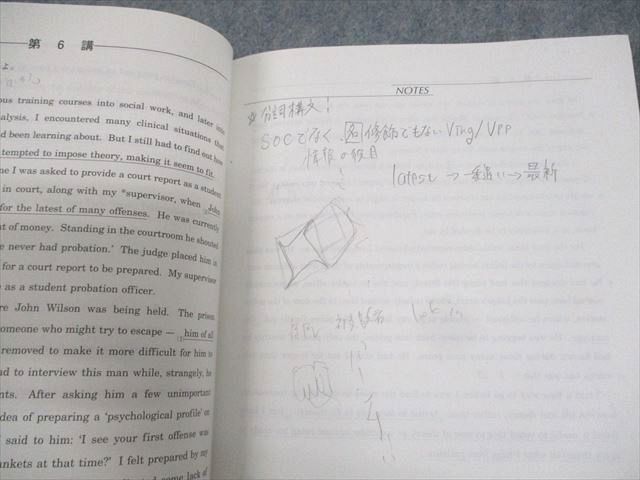 第 6 講
ous training courses into social work, and later into
alysis, I encountered many clinical situations that
d been learning about. But I still had to find out how
tempted to impose theory, making it seem to fit.
ne I was asked to provide a court report as a student
in court, along with my *supervisor, when John
for the latest of many offenses. He was currently
nt of money. Standing in the courtroom he shouted
e never had probation.' The judge placed him in
for a court report to be prepared. My supervisor
e as a student probation officer.
re John Wilson was being held. The prison
omeone who might try to escape — him of all
removed to make it more difficult for him to
ud to interview this man while, strangely, he
nts. After asking him a few unimportant
dea of preparing a 'psychological profile' on
said to him: 'I see your first offense was
nkets at that time?' I felt prepared by my
some lack of
NOTES
分詞構文!
SOCでなく、名修飾でもない Ving/Vpp
情報の
latest → 一番遅い → 最新